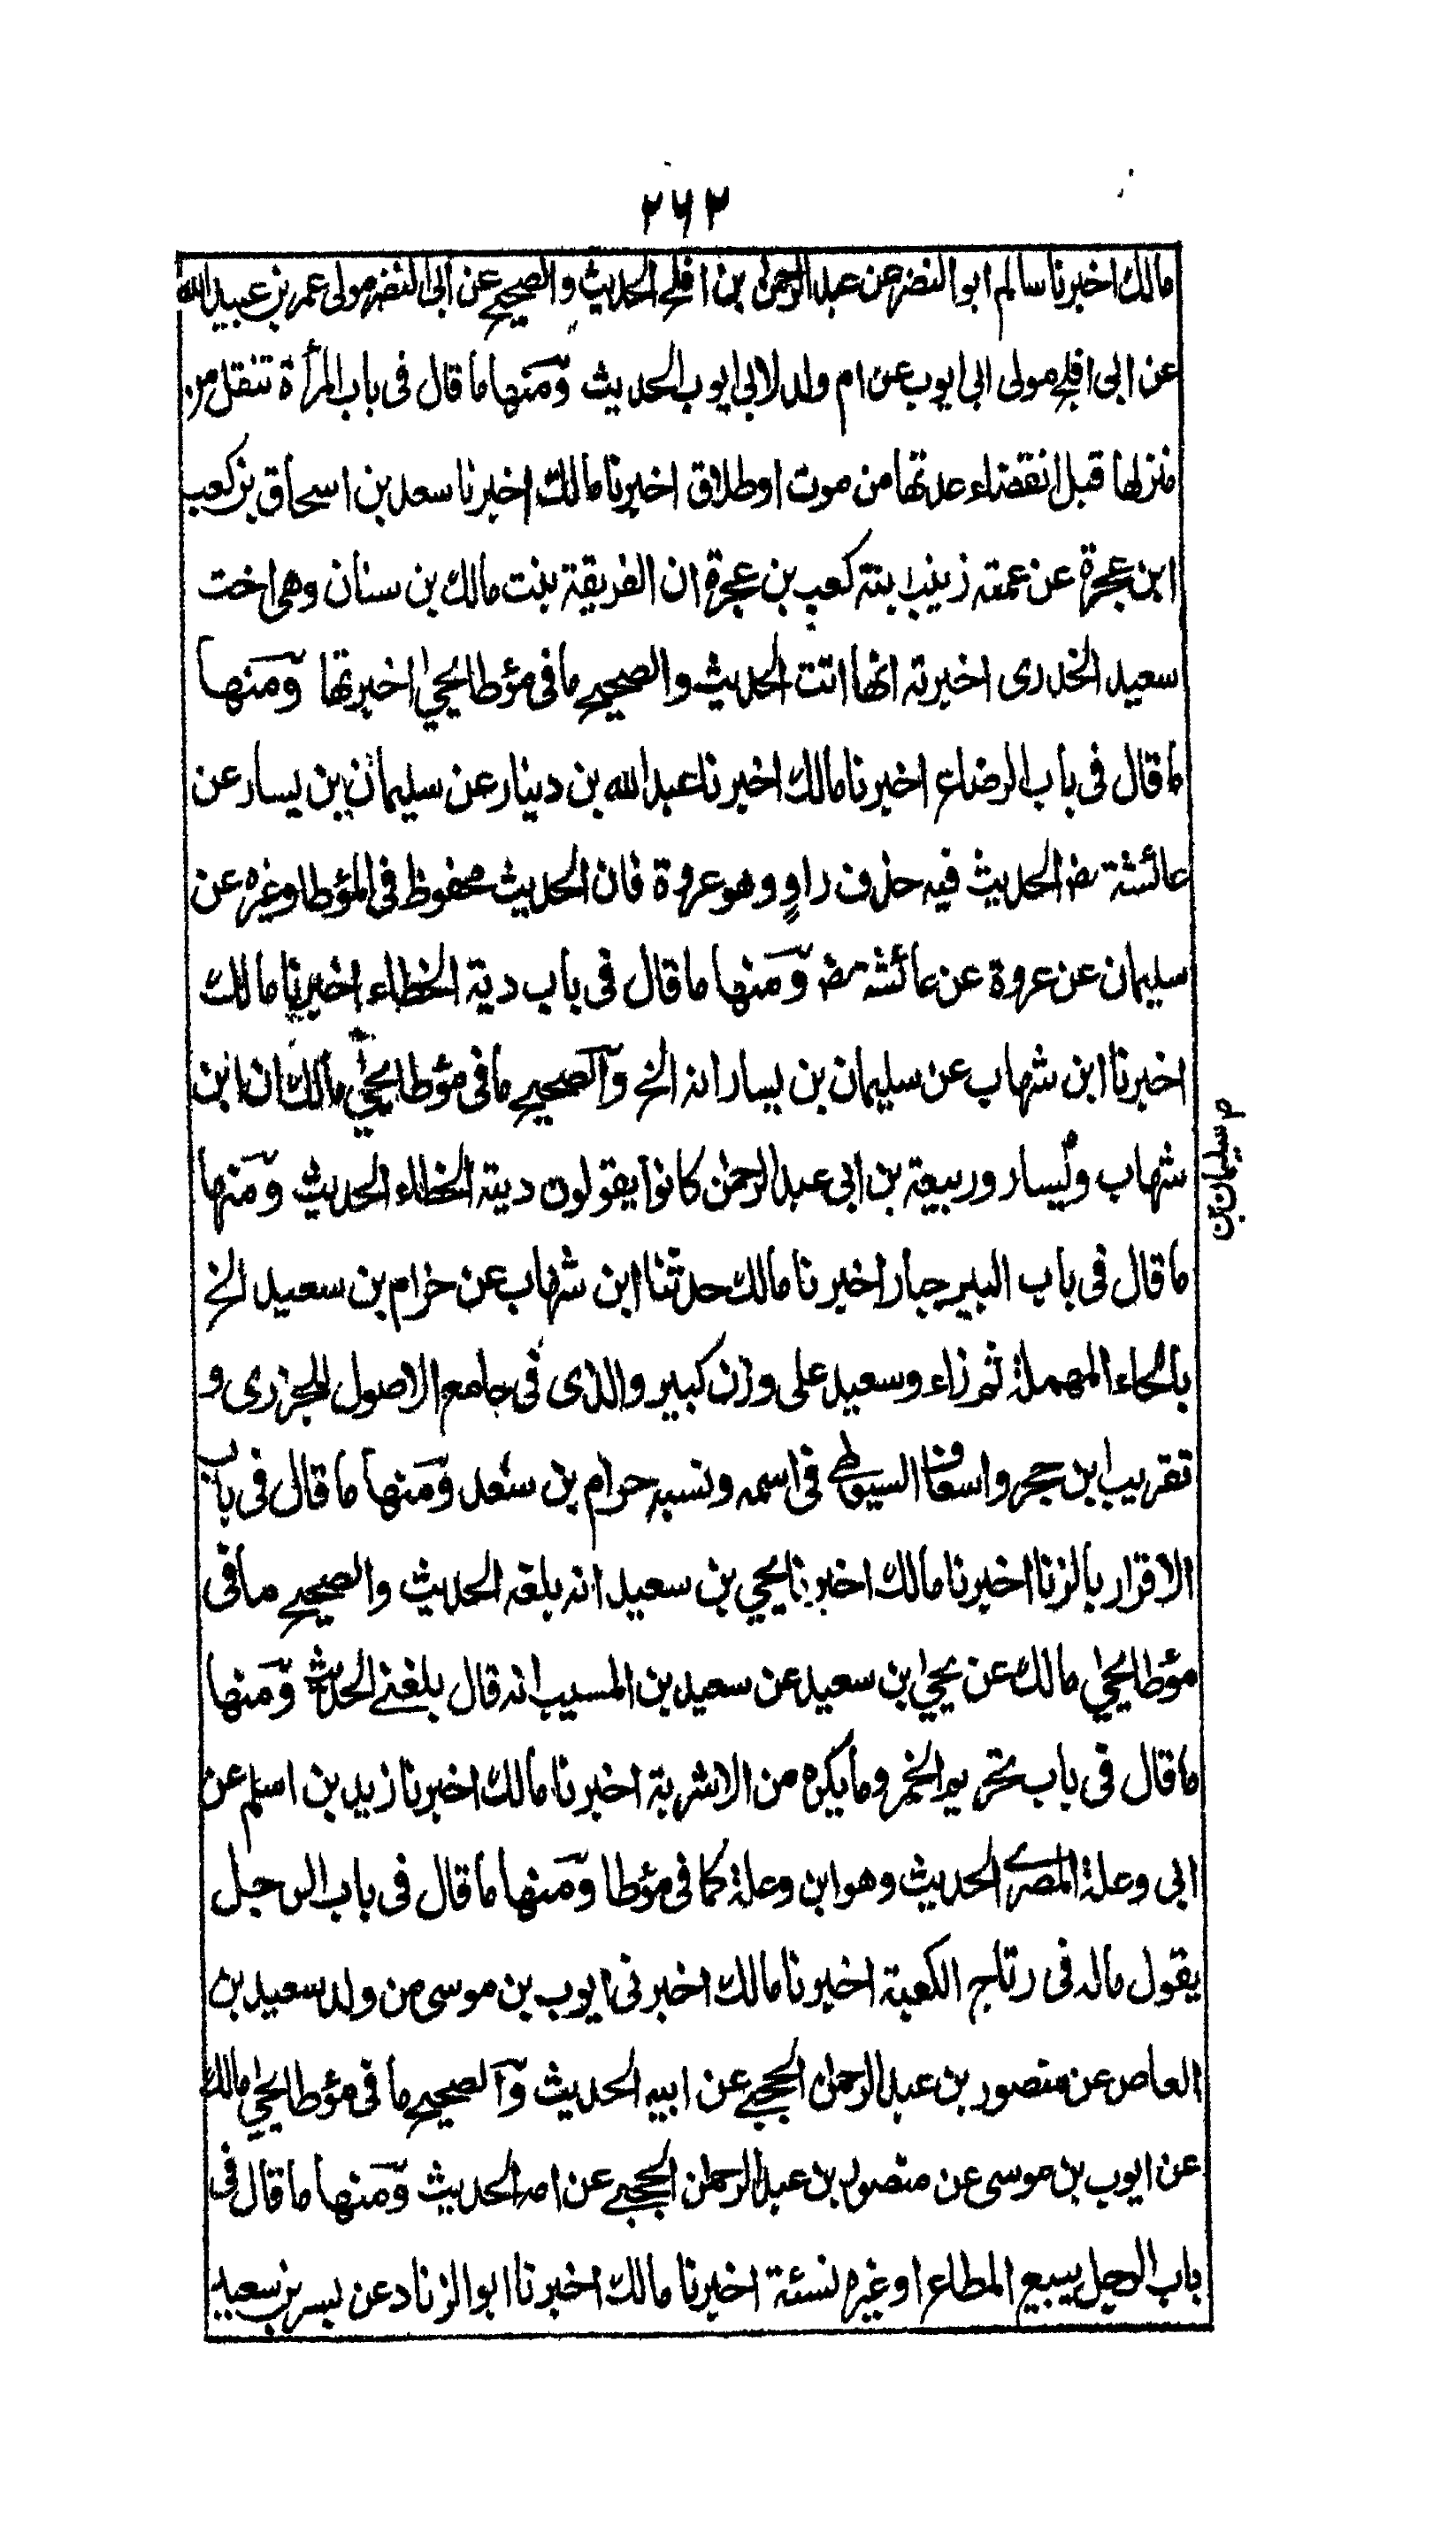 ٢٦٢
مالك اخبرنا سالم ابو النضر عن عبد الرحمٰن بن افلح الحديث والصحيح عن ابى النضر مولى عمر بن عبيد الله
عن ابى افلح مولى ابى ايوب عن ام ولد لابى ايوب الحديث ومنها ما قال فى باب المرأة تنقل من
منزلها قبل انقضاء عدتها من موت او طلاق اخبرنا مالك اخبرنا سعد بن اسحاق بن كعب
ابن عجرة عن عمته زينب ابنة كعب بن عجرة ان الفريقة بنت مالك بن سنان وهى اخت
سعيد الخدرى اخبرته انها اتت الحديث والصحيح ما فى مؤطا يحيىٰ اخبرتها ومنها
ما قال فى باب الرضاع اخبرنا مالك اخبرنا عبد الله بن دينار عن سليمان بن يسار عن
عائشة رض الحديث فيه حذف راوٍ وهو عروة فان الحديث محفوظ فى المؤطا وغيره عن
سليمان عن عروة عن عائشة رض ومنها ما قال فى باب دية الخطاء اخبرنا مالك
اخبرنا ابن شهاب عن سليمان بن يسار انه الخ والصحيح ما فى مؤطا يحيىٰ مالك ان ابن
شهاب و يسار وربيعة بن ابى عبد الرحمٰن كانوا يقولون دية الخطاء الحديث ومنها
م سليمان بن
ما قال فى باب البير جبار اخبرنا مالك حدثنا ابن شهاب عن حزام بن سعيد الخ
بالحاء المهملة ثم زاء وسعيد على وزن كبير والذى فى جامع الاصول للجزرى و
تقريب ابن حجر واسعاف السيوطى فى اسمه ونسبه حرام بن سعد ومنها ما قال فى باب
الاقرار بالزنا اخبرنا مالك اخبرنا يحيي بن سعيد انه بلغه الحديث والصحيح ما فى
مؤطا يحيىٰ مالك عن يحيىٰ بن سعيد عن سعيد بن المسيب انه قال بلغنى الحديث ومنها
ما قال فى باب تحريم الخمر وما يكره من الاشربة اخبرنا مالك اخبرنا زيد بن اسلم عن
ابى وعلة المصرى الحديث وهو ابن وعلة كما فى مؤطا ومنها ما قال فى باب الرجل
يقول ماله فى رتاج الكعبة اخبرنا مالك اخبرنى ايوب بن موسى من ولد سعيد بن
العاص عن منصور بن عبد الرحمٰن الحجبى عن ابيه الحديث والصحيح ما فى مؤطا يحيىٰ مالك
عن ايوب بن موسى عن منصور بن عبد الرحمٰن الحجبى عن امه الحديث ومنها ما قال فى
باب الرجل يبيع المطاع او غيره نسئة اخبرنا مالك اخبرنا ابو الزناد عن بسر بن سعيد